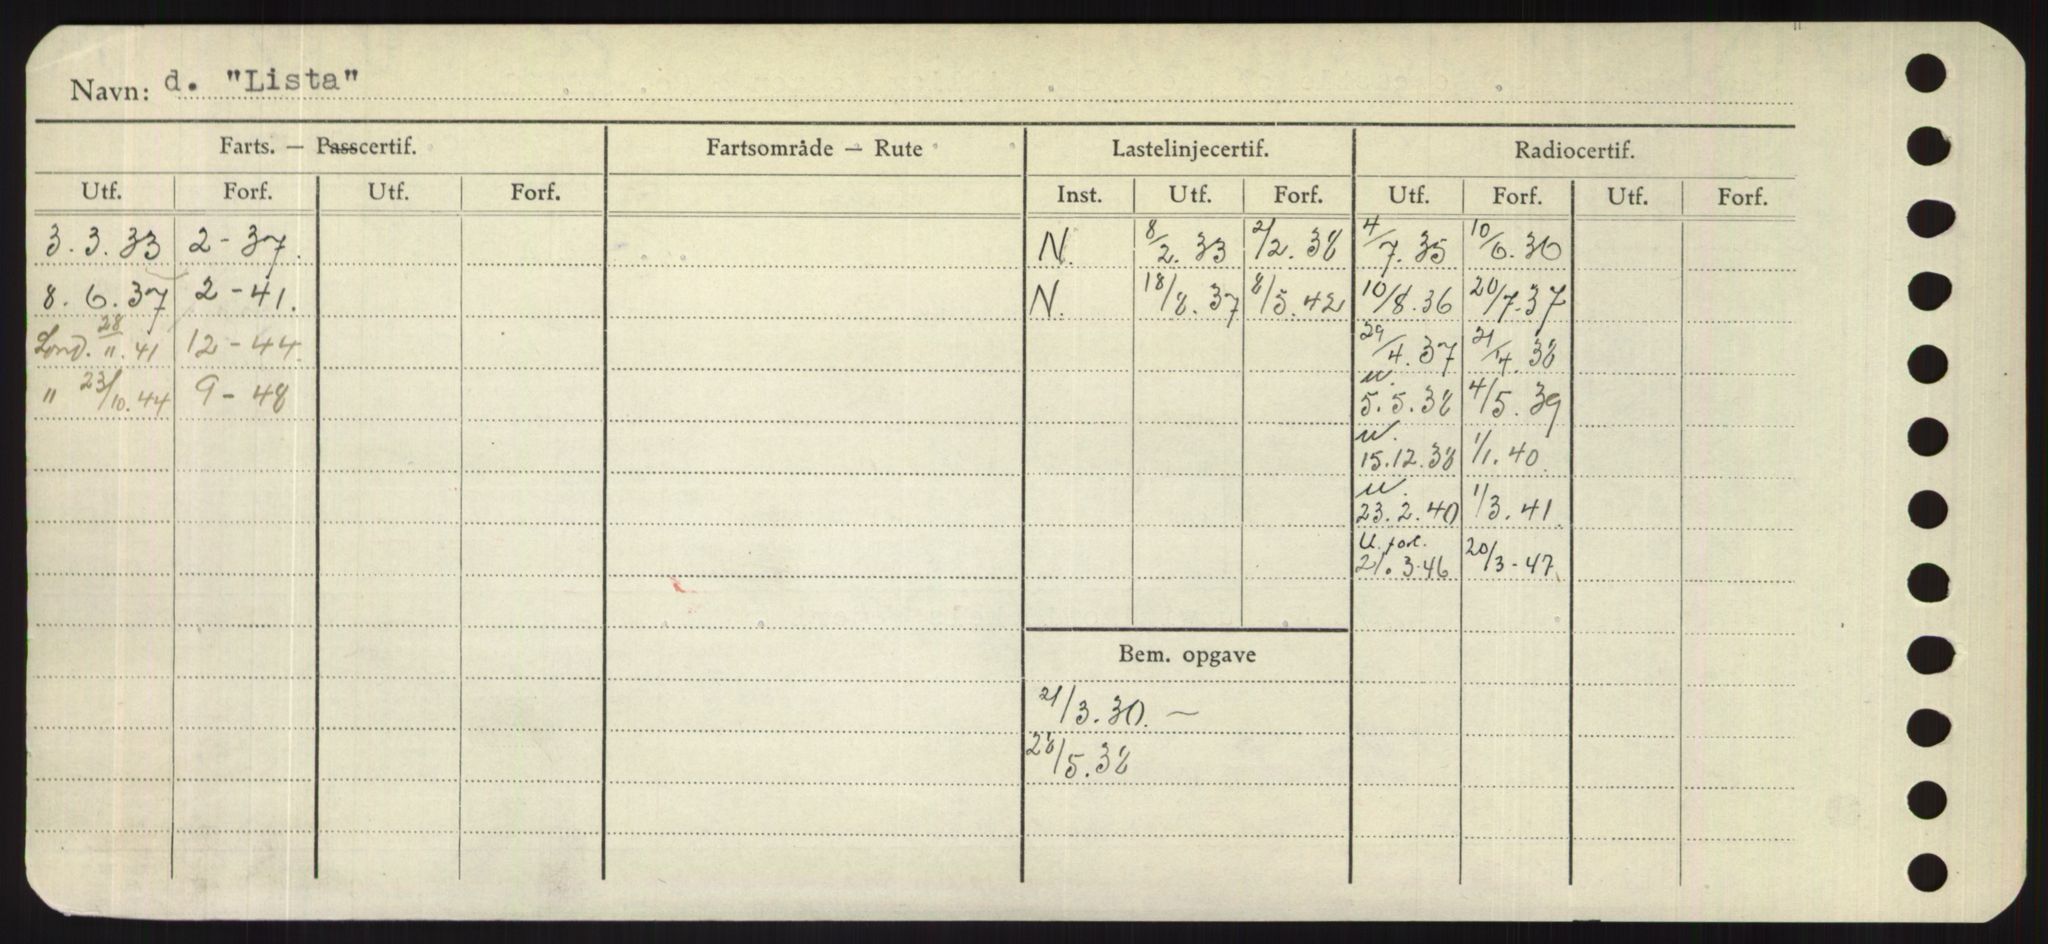 Navn: d. "Lista"
Farts. — Passcertif. Fartsområde — Rute Lastelinjecertif. Radiocertif.
Utf. Forf. Utf. Forf. Inst. Utf. Forf. Utf. Forf. Utf. Forf.
3.3.33 2-37. N. 8/2.33 2/2.38 4/7.35 10/6.36
8.6.37 2-41. N. 18/8.37 8/5.42 10/8.36 20/7-37
Lond. 28/11.41 12-44 29/4.37 21/4.38
" 23/10.44 9-48 u. 5.5.38 4/5.39
u. 15.12.38 1/1.40
u. 23.2.40 1/3.41
U. forl. 21.3-46 20/3-47
Bem. opgave
21/3.30. —
28/5.38